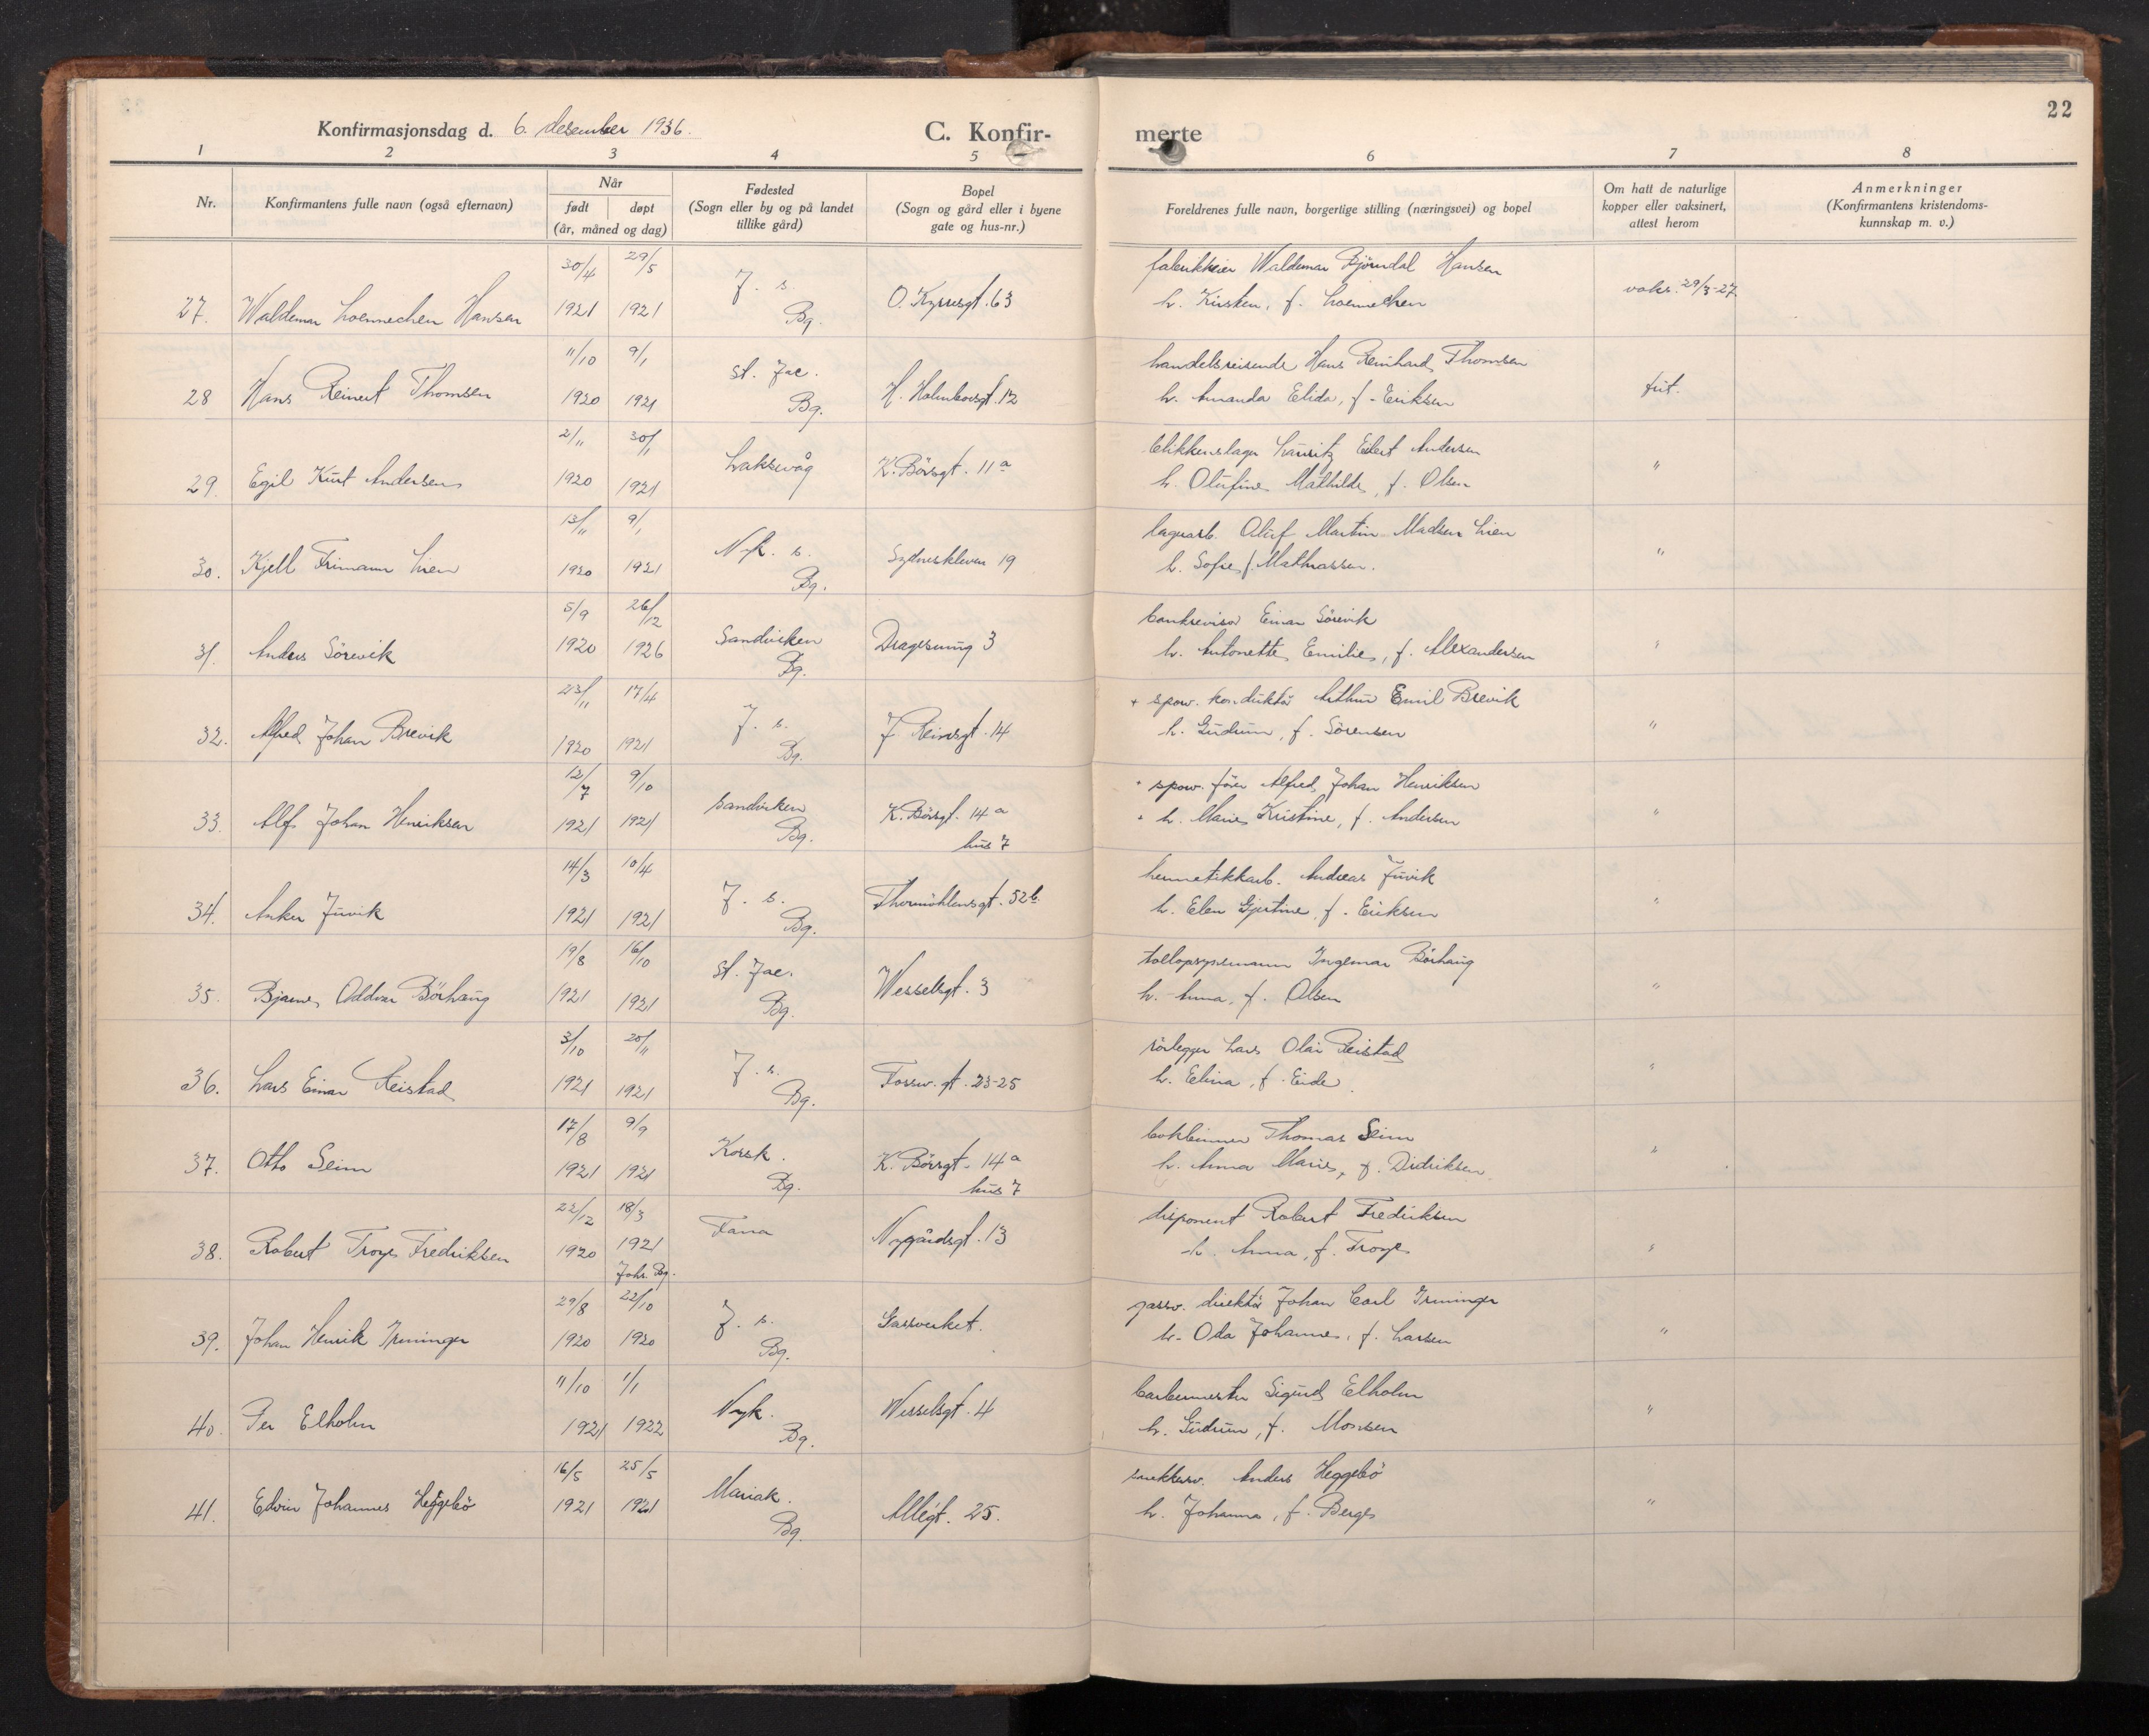 22
Konfirmasjonsdag d. 6. desember 1936.
C. Konfir-
merte
1 2 3 4 5 6 7 8
Nr.
Konfirmantens fulle navn (også efternavn)
Når
født døpt
(år, måned og dag)
Fødested
(Sogn eller by og på landet
tillike gård)
Bopel
(Sogn og gård eller i byene
gate og hus-nr.)
Foreldrenes fulle navn, borgerlige stilling (næringsvei) og bopel
Om hatt de naturlige
kopper eller vaksinert,
attest herom
Anmerkninger
(Konfirmantens kristendoms-
kunnskap m. v.)
30/4 29/5 J. s. fabrikkeier Waldemar Bjørndal Hansen
27. Waldemar Loennechen Hansen 1921 1921 Bg. O. Kyrresgt. 63 h. Kirsten, f. Loennechen vaks. 29/3-27
11/10 9/1 St. Jac. handelsreisende Hans Reinhard Thomsen
28 Hans Reinert Thomsen 1920 1921 Bg. H. Holmboesgt. 12 h. Amanda Elida, f. Eriksen
2/11 30/1 Laksevåg blikkenslager Lauritz Eilert Andersen
29. Egil Kurt Andersen 1920 1921 K. Börsgt. 11a h. Olufine Mathilde, f. Olsen "
13/11 9/1 Nyk. s. lagerarb. Oluf Martin Madsen Lien
30. Kjell Frimann Lien 1920 1921 Bg. Sydneskleven 19 h. Sofie f. Mathiassen. "
5/9 26/12 Sandviken bankrevisor Einar Sörevik
31. Anders Sörevik 1920 1926 Bg. Dragesmug 3 h. Antonette Emilie, f. Alexandersen "
23/11 17/4 J. s. + sporv. konduktör Arthur Emil Brevik
32. Alfred Johan Brevik 1920 1921 Bg. J. Reinsgt. 14 h. Gudrun, f. Sörensen "
12/7 9/10 Sandviken + sporv. förer Alfred Johan Henriksen
33. Alf Johan Henriksen 1921 1921 Bg. K. Börsgt. 14a + h. Marie Kristine, f. Andersen "
hus 7
14/3 10/4 J. s. hermetikkarb. Andreas Juvik
34. Anker Juvik 1921 1921 Bg. Thormöhlensgt. 52b. h. Elen Gjertine, f. Eriksen "
19/8 16/10 St. Jac. tollopsynsmann Ingemar Börhaug
35. Bjarne Oddvar Börhaug 1921 1921 Bg. Wesselsgt. 3 h. Anna, f. Olsen "
3/10 20/11 J. s. rörlegger Lars Olai Reistad
36. Lars Einar Reistad 1921 1921 Bg. Fossw. gt. 23-25 h. Elina, f. Eide "
17/8 9/9 Korsk. bokbinner Thomas Seim
37. Otto Seim 1921 1921 Bg. K. Börsgt. 14a h. Anna Marie, f. Didriksen "
hus 7
22/12 18/3 Fana disponent Robert Fredriksen
38. Robert Troye Fredriksen 1920 1921 Nygårdsgt. 13 h. Anna, f. Troye "
Joh. Bg.
29/8 22/10 J. s. gassv. direktör Johan Carl Irminger
39. Johan Henrik Irminger 1920 1920 Bg. Gassverket. h. Oda Johanne, f. Larsen "
11/10 1/1 Nyk. barbermester Sigurd Elholm
40. Per Elholm 1921 1922 Bg. Wesselsgt. 4 h. Gudrun, f. Monsen "
16/5 25/5 Mariak. Anders Heggebö
41. Edvin Johannes Heggebö 1921 1921 Bg. Allégt. 25. h. Johanna, f. Berge "